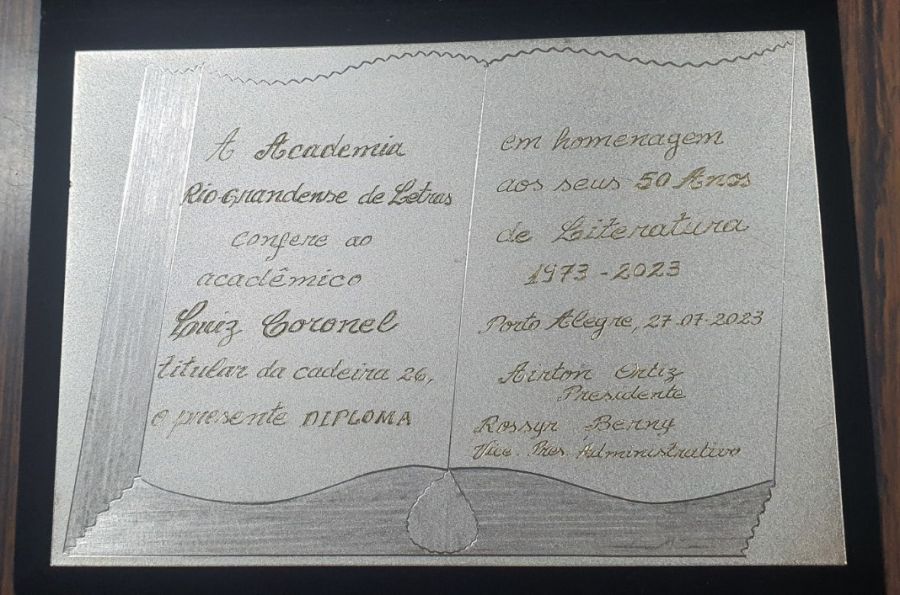 A Academia
Rio-Grandense de Letras
confere ao
acadêmico
Luiz Coronel
titular da cadeira 26,
o presente DIPLOMA
em homenagem
aos seus 50 Anos
de Literatura
1973 - 2023
Porto Alegre, 27-07-2023
Airton Ortiz
Presidente
Rossyr Berny
Vice. Pres. Administrativo